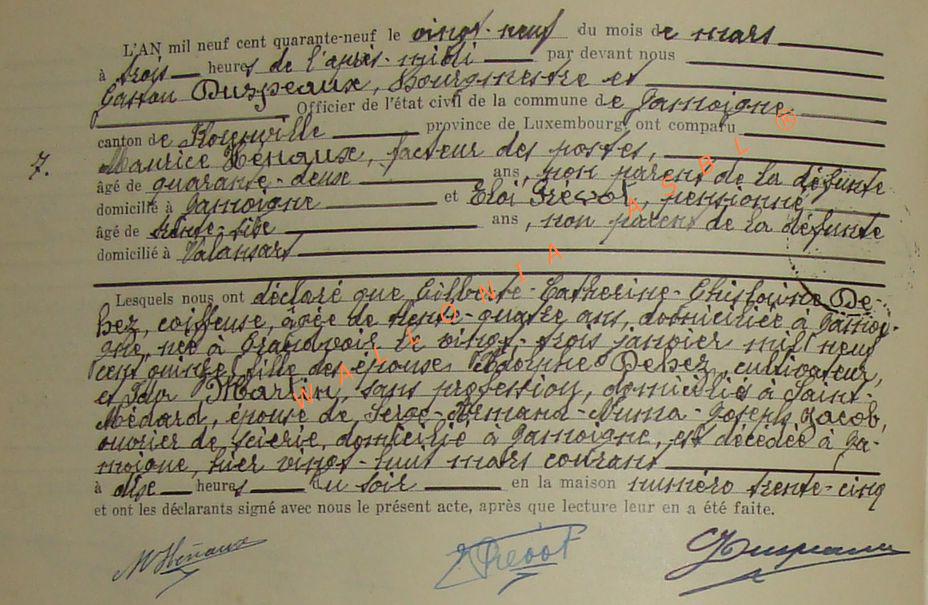 L'AN mil neuf cent quarante-neuf le vingt-neuf du mois de mars
à trois heures de l'après-midi par devant nous
Gaston Duspeaux, Bourgmestre et
Officier de l'état civil de la commune de Jamoigne
canton de Florenville province de Luxembourg, ont comparu
7. Maurice Hénaux, facteur des postes,
âgé de quarante-deux ans, non parent de la défunte
domicilié à Jamoigne et Eloi Prévot, pensionné
âgé de ans, non parent de la défunte
domicilié à Valansart
Lesquels nous ont déclaré que Gilberte-Catherine-Ghislaine De-
hez, coiffeuse, âgée de trente-quatre ans, domiciliée à Jamoi-
gne, née à Grandvoir le vingt-trois janvier mil neuf
cent quinze, fille des époux Dehez, cultivateur,
et Ida Martin, sans profession, domiciliés à Saint-
Médard, épouse de Serge-Armand-Numa-Joseph Jacob,
ouvrier de scierie, domicilié à Jamoigne, est décédée à Ja-
moigne, hier vingt-huit mars courant
à dix heures du soir en la maison numéro trente-cinq
et ont les déclarants signé avec nous le présent acte, après que lecture leur en a été faite.
MHénaux EPrévot GDuspeaux
WALLONIA ASBL ®